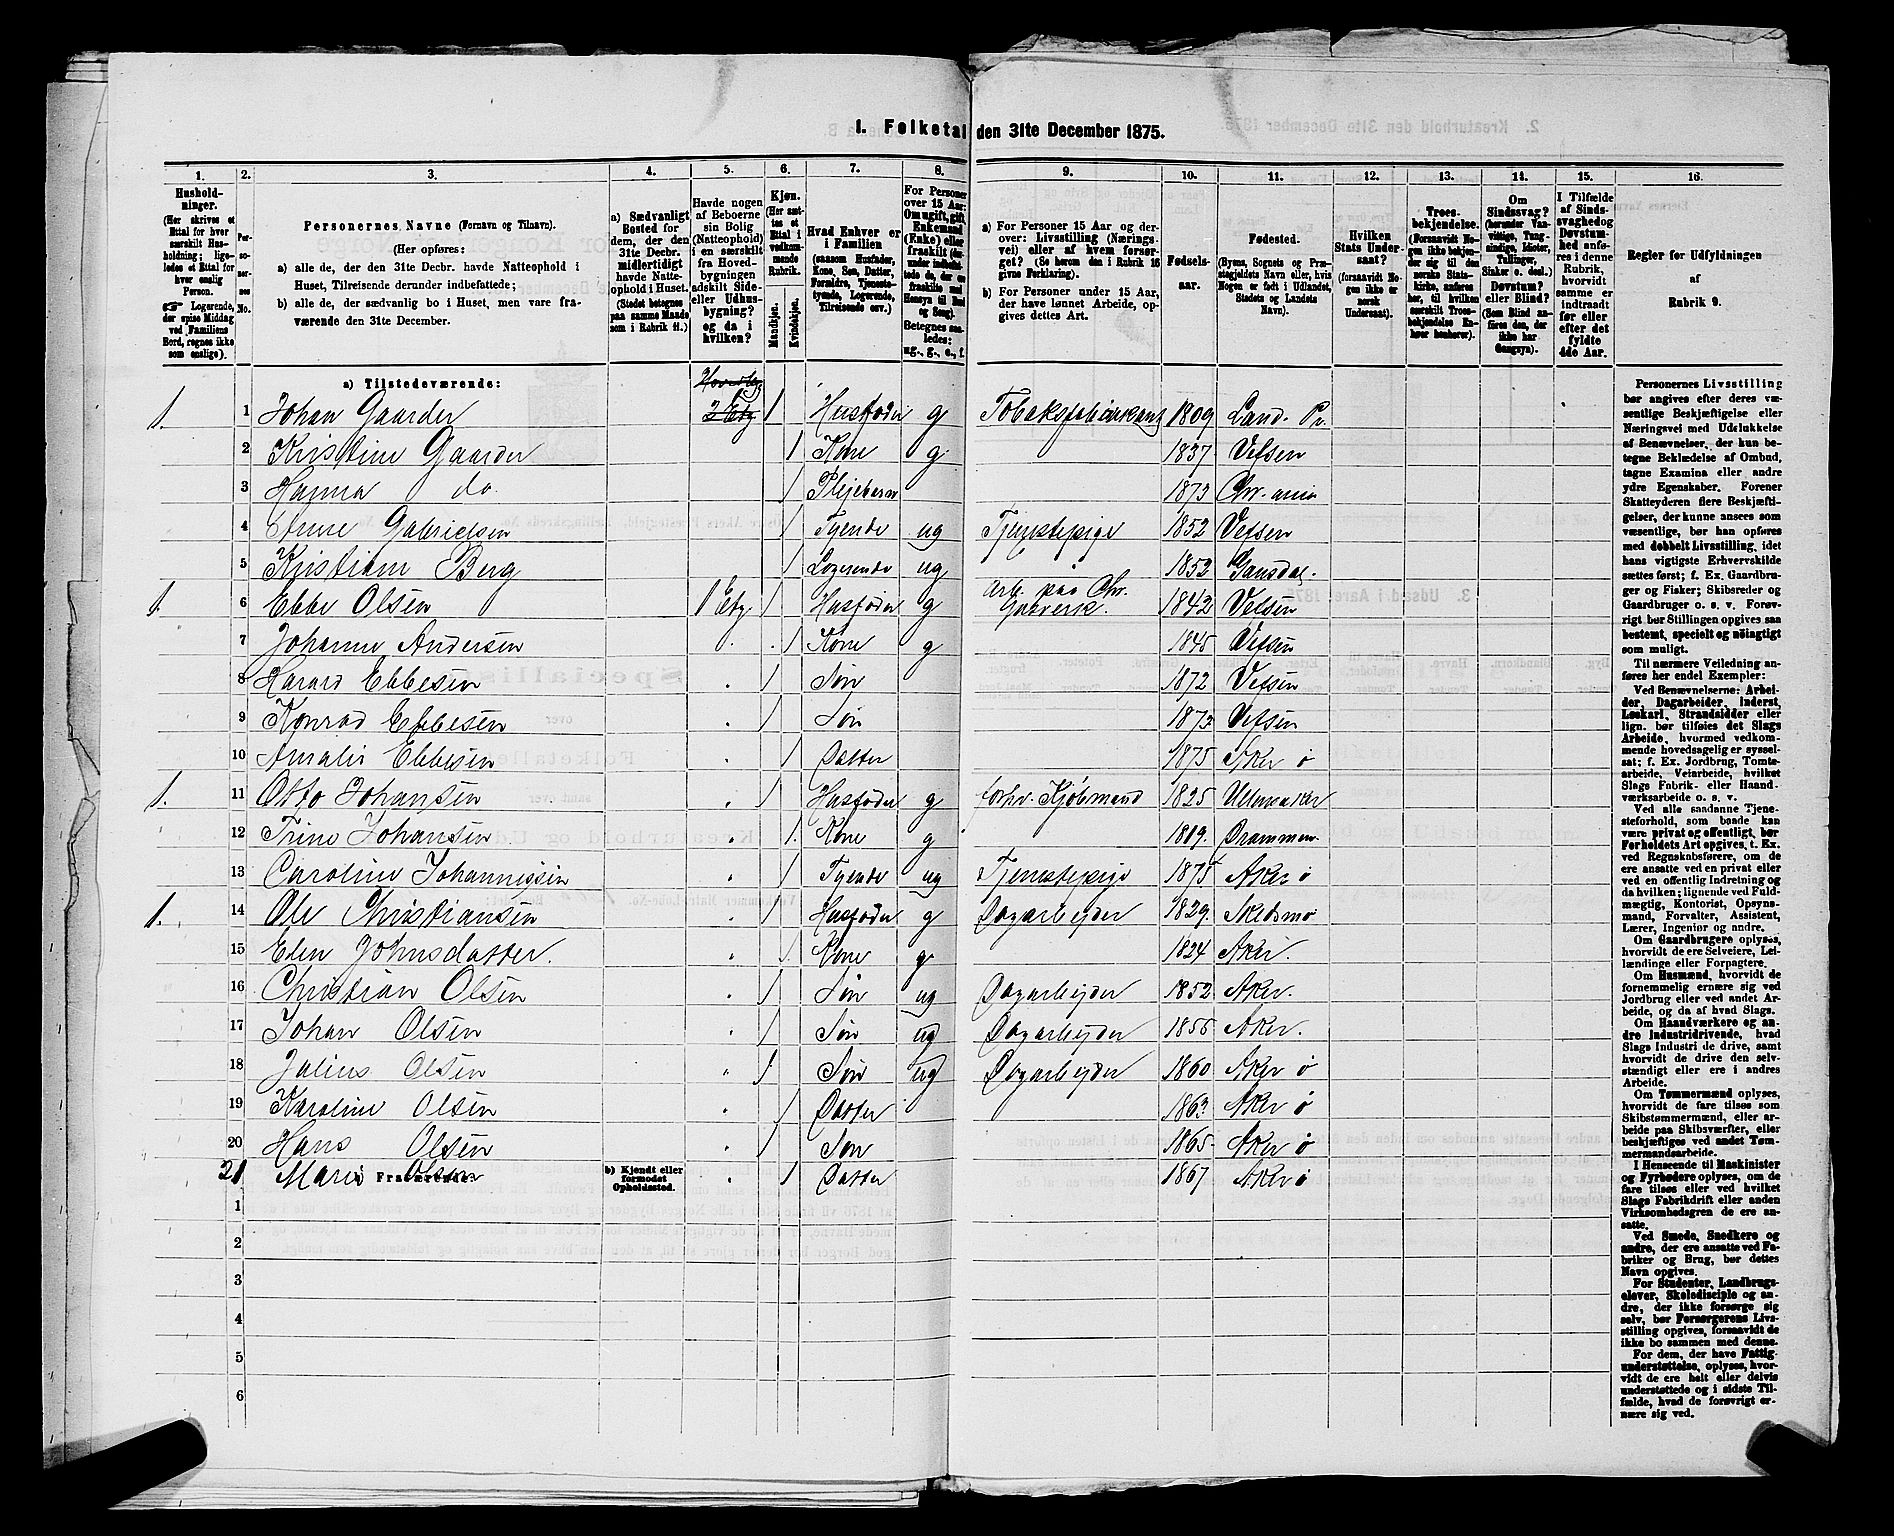 1. Folketal den 31te December 1875.
1. 2. 3. 4. 5. 6. 7. 8. 9. 10. 11. 12. 13. 14. 15. 16.
Hushold-
ninger.
(Her skrives et
Ettal for hver
særskilt Hus-
holdning; lige-
ledes et Ettal for
enslig
Person.
Logerende,
der spise Middag
ved Familiens
Bord, regnes ikke
som enslige).
Personernes No.
Personernes Navne (Fornavn og Tilnavn).
(Her opføres:
a) alle de, der den 31te Decbr. havde Natteophold i
Huset, Tilreisende derunder indbefattede;
b) alle de, der sædvanlig bo i Huset, men vare fra-
værende den 31te December.
a) Sædvanligt
Bosted for
dem, der den
31te Decbr.
midlertidigt
havde Natte-
ophold i Huset.
(Stedet betegnes
paa samme Maade
som i Rubrik 11.)
Havde nogen
af Beboerne
sin Bolig
(Natteophold)
i en særskilt
fra Hoved-
bygningen
adskilt Side-
eller Udhus-
bygning?
og da i
hvilken?
Kjøn.
(Her sæt-
tes et
Ettal i
vedkom-
mende
Rubrik.
Mandkjøn.
Kvindekjøn.
Hvad Enhver er
i Familien
(saasom Husfader,
Kone, Søn, Datter,
Forældre, Tjeneste-
tyende, Logerende,
Tilreisende osv.)
For Personer
over 15 Aar:
Om ugift, gift,
Enkemand
(Enke) eller
fraskilt
Betegnes saa-
ledes:
ug., g., e., f.
a) For Personer over 15 Aar og der-
over: Livsstilling (Nærings-
vei) eller af hvem forsør-
get? (Se herom den i Rubrik 16
givne Forklaring).
b) For Personer under 15 Aar,
der have lønnet Arbeide, op-
gives dettes Art.
Fødsels-
aar.
Fødested.
(Byens, Sognets og Præ-
stegjeldets Navn eller, hvis
Nogen er født i Udlandet,
Stedets og Landets
Navn).
Hvilken
Stats Under-
saat?
(forsaavidt No-
gen ikke er
norsk
Undersaat).
Troes-
bekjendelse.
(Forsaavidt No-
gen ikke bekjen-
der sig til den
norske Stats-
kirke, anføres
her, til hvilken
særskilt Troes-
bekjendelse En-
hver henhører).
Om
Sindssvag?
(herunder Van-
vittige, Tung-
sindige, Idioter,
Tullinger,
Sinker o. desl.)
Døvstum?
eller Blind?
(Som Blind an-
føres den, der
ikke har
Gangsyn).
I Tilfælde
af Sinds-
svaghed og
Døvstum-
hed anfø-
res i denne
Rubrik,
hvorvidt
samme er
indtraadt
før eller
efter det
fyldte
4de Aar.
Regler for Udfyldningen
af
Rubrik 9.
a) Tilstedeværende:
1. 1 Johan Gaarder 2 Etg 1 Husfader g Tobaksfabrikant 1809 Land. Pr.
2 Kristine Gaarder 1 Kone g 1837 Vefsen
3 Hanna do. 1 Plejebarn 1873 Chr.ania
4 Anne Gabrielsen 1 Tyende ug Tjenestepige 1852 Vefsen
5 Kristiane Berg 1 Logerende ug 1852
1. 6 Ebbe Olsen 1 Etg. 1 Husfader g Arb. paa Chr. Gasverk. 1842 Vefsen
7 Johanne Andersen 1 Kone g 1845 Vefsen
8 Harald Ebbesen 1 Søn 1872 Vefsen
9 Konrad Ebbesen 1 Søn 1873 Vefsen
10 Amalie Ebbesen 1 Datter 1875 Aker ø
1. 11 Otto Johansen 1 Husfader g forhv. Kjøbmand 1825 Ullensaker
12 Trine Johansen 1 Kone g 1809. Drammen
13 Caroline Johannessen 1 Tyende ug Tjenestepige 1875 Aker ø
1. 14 Ole Christiansen 1 Husfader g Dagarbejder 1829. Skedsmo
15 Elen Johnsdatter. 1 Kone g 1824 Aker.
16 Christian Olsen 1 Søn ug Dagarbejder 1852 Aker.
17 Johan Olsen 1 Søn ug Dagarbejder 1856 Aker.
18 Julius Olsen 1 Søn ug Dagarbejder 1860 Aker ø
19 Karoline Olsen 1 Datter 1863 Aker ø
20 Hans Olsen 1 Søn 1865 Aker ø
21 Marie Olsen 1 Datter 1867 Aker ø
b) Fraværende:
b) Kjendt eller
formodet
Opholdssted.
1
2
3
4
5
6
Personernes Livsstilling
bør angives efter deres væ-
sentlige Beskjæftigelse eller
Næringsvei med Udelukkelse
af Benævnelser, der kun be-
tegne Beklædelse af Ombud,
tagne Examina eller andre
ydre Egenskaber. Forener
Skatteyderen flere Beskjæfti-
gelser, der kunne ansees som
væsentlige, bør han opføres
med dobbelt Livsstilling, idet
hans vigtigste Erhvervskilde
sættes først; f. Ex. Gaardbru-
ger og Fisker; Skibsreder og
Gaardbruger o. s. v. Forøv-
rigt bør Stillingen opgives saa
bestemt, specielt og nøiagtigt
som muligt.
Til nærmere Veiledning an-
føres her endel Exempler:
Ved Benævnelserne: Arbei-
der, Dagarbeider, Inderst,
Løskarl, Strandsidder eller
lign. bør tilføies det Slags
Arbeide, hvormed vedkom-
mende hovedsagelig er syssel-
sat; f. Ex. Jordbrug, Tomte-
arbeide, Veiarbeide, hvilket
Slags Fabrik- eller Haand-
værksarbeide o. s. v.
Ved alle saadanne Tjene-
steforhold, som baade kan
være privat og offentligt, bør
Forholdets Art opgives, t. Ex.
ved Regnskabsførere, om de
ere ansatte ved en privat eller
ved en offentlig Indretning og
da hvilken; lignende ved Fuld-
mægtig, Kontorist, Opsyns-
mand, Forvalter, Assistent,
Lærer, Ingeniør og andre.
Om Gaardbrugere oplyses,
hvorvidt de ere Selveiere, Lei-
lændinge eller Forpagtere.
Om Husmænd, hvorvidt de
fornemmelig ernære sig ved
Jordbrug eller ved andet Ar-
beide, og da af hvad Slags.
Om Haandværkere og an-
dre Industridrivende, hvad
Slags Industri de drive, samt
hvorvidt de drive den selv-
stændigt eller ere i andres
Arbeide.
Om Tømmermænd oplyses,
hvorvidt de fare tilsøs som
Skibstømmermænd, eller ar-
beide paa Skibsværfter, eller
beskjæftiges ved andet Tøm-
mermandsarbeide.
I Henseende til Maskinister
og Fyrbødere oplyses, om de
fare tilsøs eller ved hvilket
Slags Fabrikdrift eller anden
Virksomhedsgren de ere an-
satte.
Ved Smede, Snedkere og
andre, der ere ansatte ved Fa-
briker og Brug, bør dettes
Navn opgives.
For Studenter, Landbrugs-
elever, Skoledisciple og an-
dre, der ikke forsørge sig
selv, bør Forsørgerens Livs-
stilling opgives, forsaavidt de
ikke bo sammen med denne.
For dem, der have Fattig-
understøttelse, oplyses, hvor-
vidt de ere helt eller delvis
understøttede og i sidste Til-
fælde, hvad de forøvrigt er-
nære sig ved.